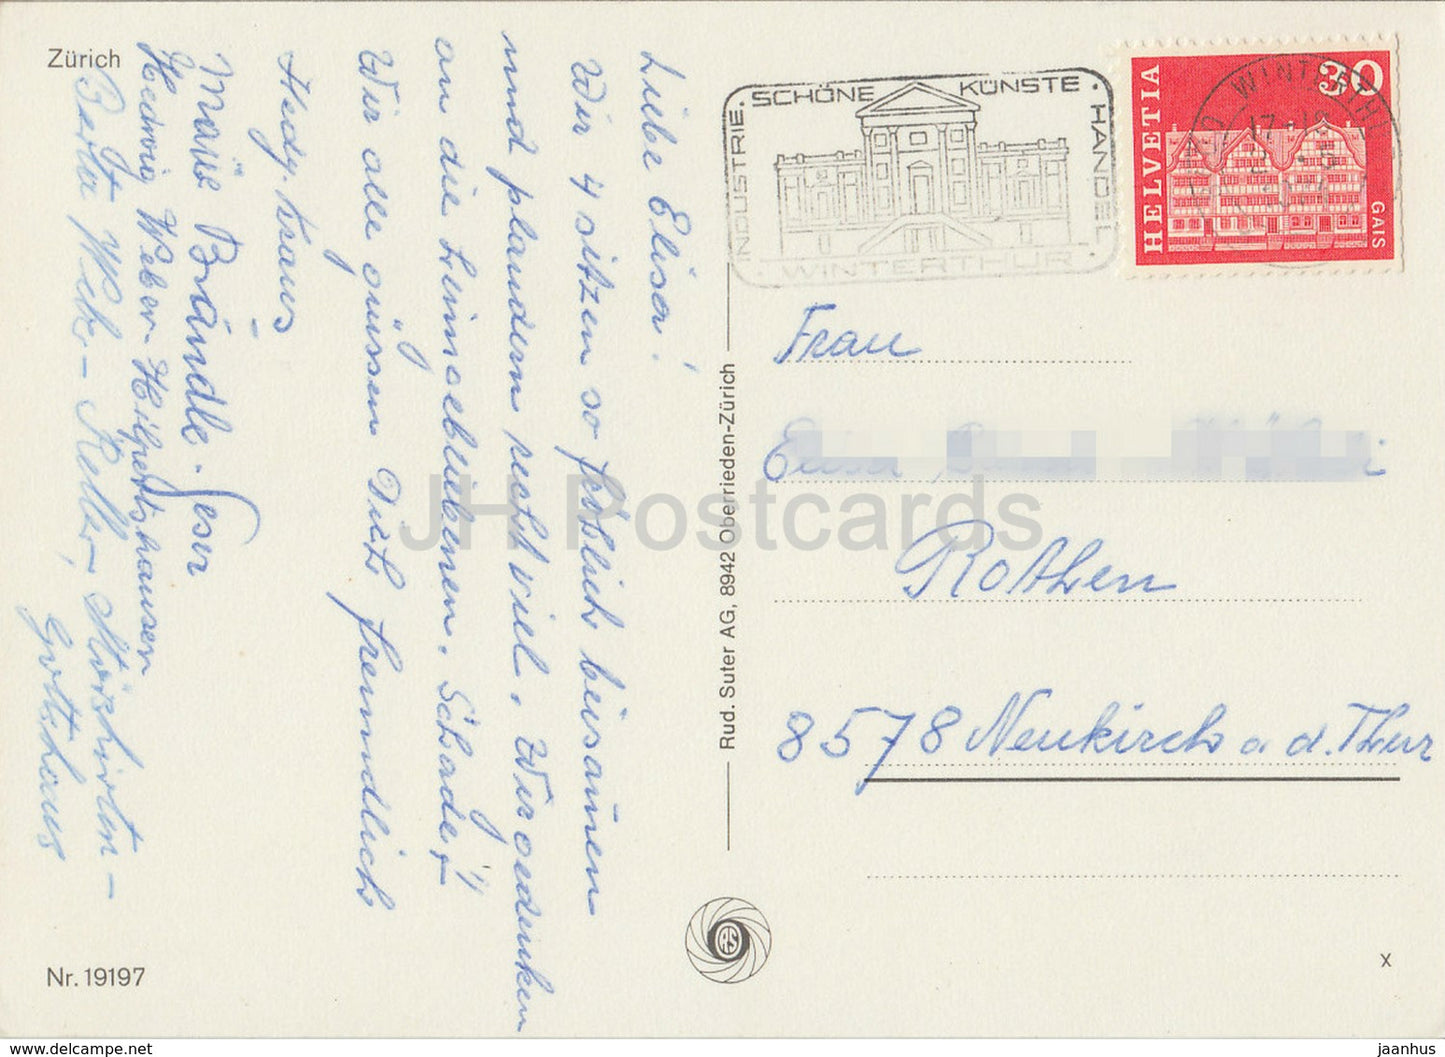 Zürich
Liebe Elisa!
Wir 4 sitzen so fröhlich beisamen
und plaudern recht viel. Wir gedenken
an die Heimgebliebenen. Schade!
Wir alle grüssen Dich freundlich
Hedy Kraus
Maus Brändle-Feser
Hedwig Weber-Hilpertshausen
Berta Walz-Keller, Storchenbeck-
Gottshaus
Nr. 19197
Rud. Suter AG, 8942 Oberrieden-Zürich
RS
INDUSTRIE · SCHÖNE KÜNSTE · HANDEL
· WINTERTHUR ·
WINTERTHUR
HELVETIA
30
GAIS
Frau
Rothen
8578 Neukirch a. d. Thur
x
JH Postcards
www.delcampe.net
jaanhus